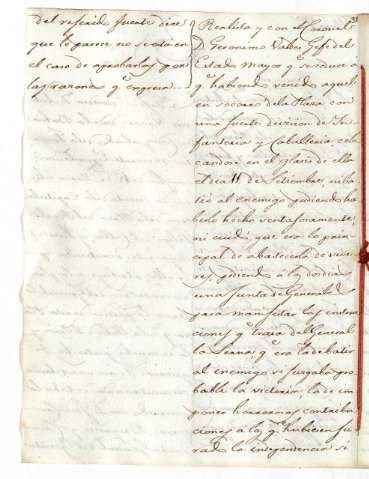 del referido fuerte dice
que le parece no se está en
el caso de aprobarlas por
las razones q.e expresa.
31
Realista y con el Coronel
D. Geronimo Valdes Gefe del
Estado Mayor q.e se reduce a
q.e habiendo venido aquel
en socorro de la Plaza con
una fuerte division de In-
fanteria y Caballeria, colo-
candose en el glasis de ella
el dia 11 de Setiembre, ni ba-
tió al enemigo pudiendo ha-
berlo hecho ventajosamente,
ni cuidó, que era lo prin-
cipal de abastecerla de vive-
res, pidiendo a los dos dias
una Junta de Generales
para manifestar las instruc-
ciones q.e traia del General
la Serna, q.e era la de batir
al enemigo si juzgaba pro-
bable la victoria; la de im-
poner horrorosas contribu-
ciones a los q.e hubiesen ju-
rado la independencia si